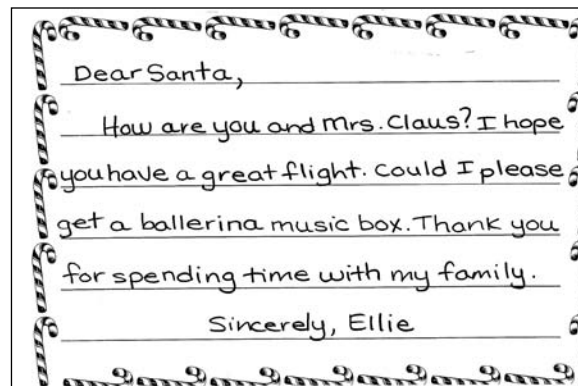 Dear Santa,
How are you and Mrs. Claus? I hope
you have a great flight. Could I please
get a ballerina music box. Thank you
for spending time with my family.
Sincerely, Ellie